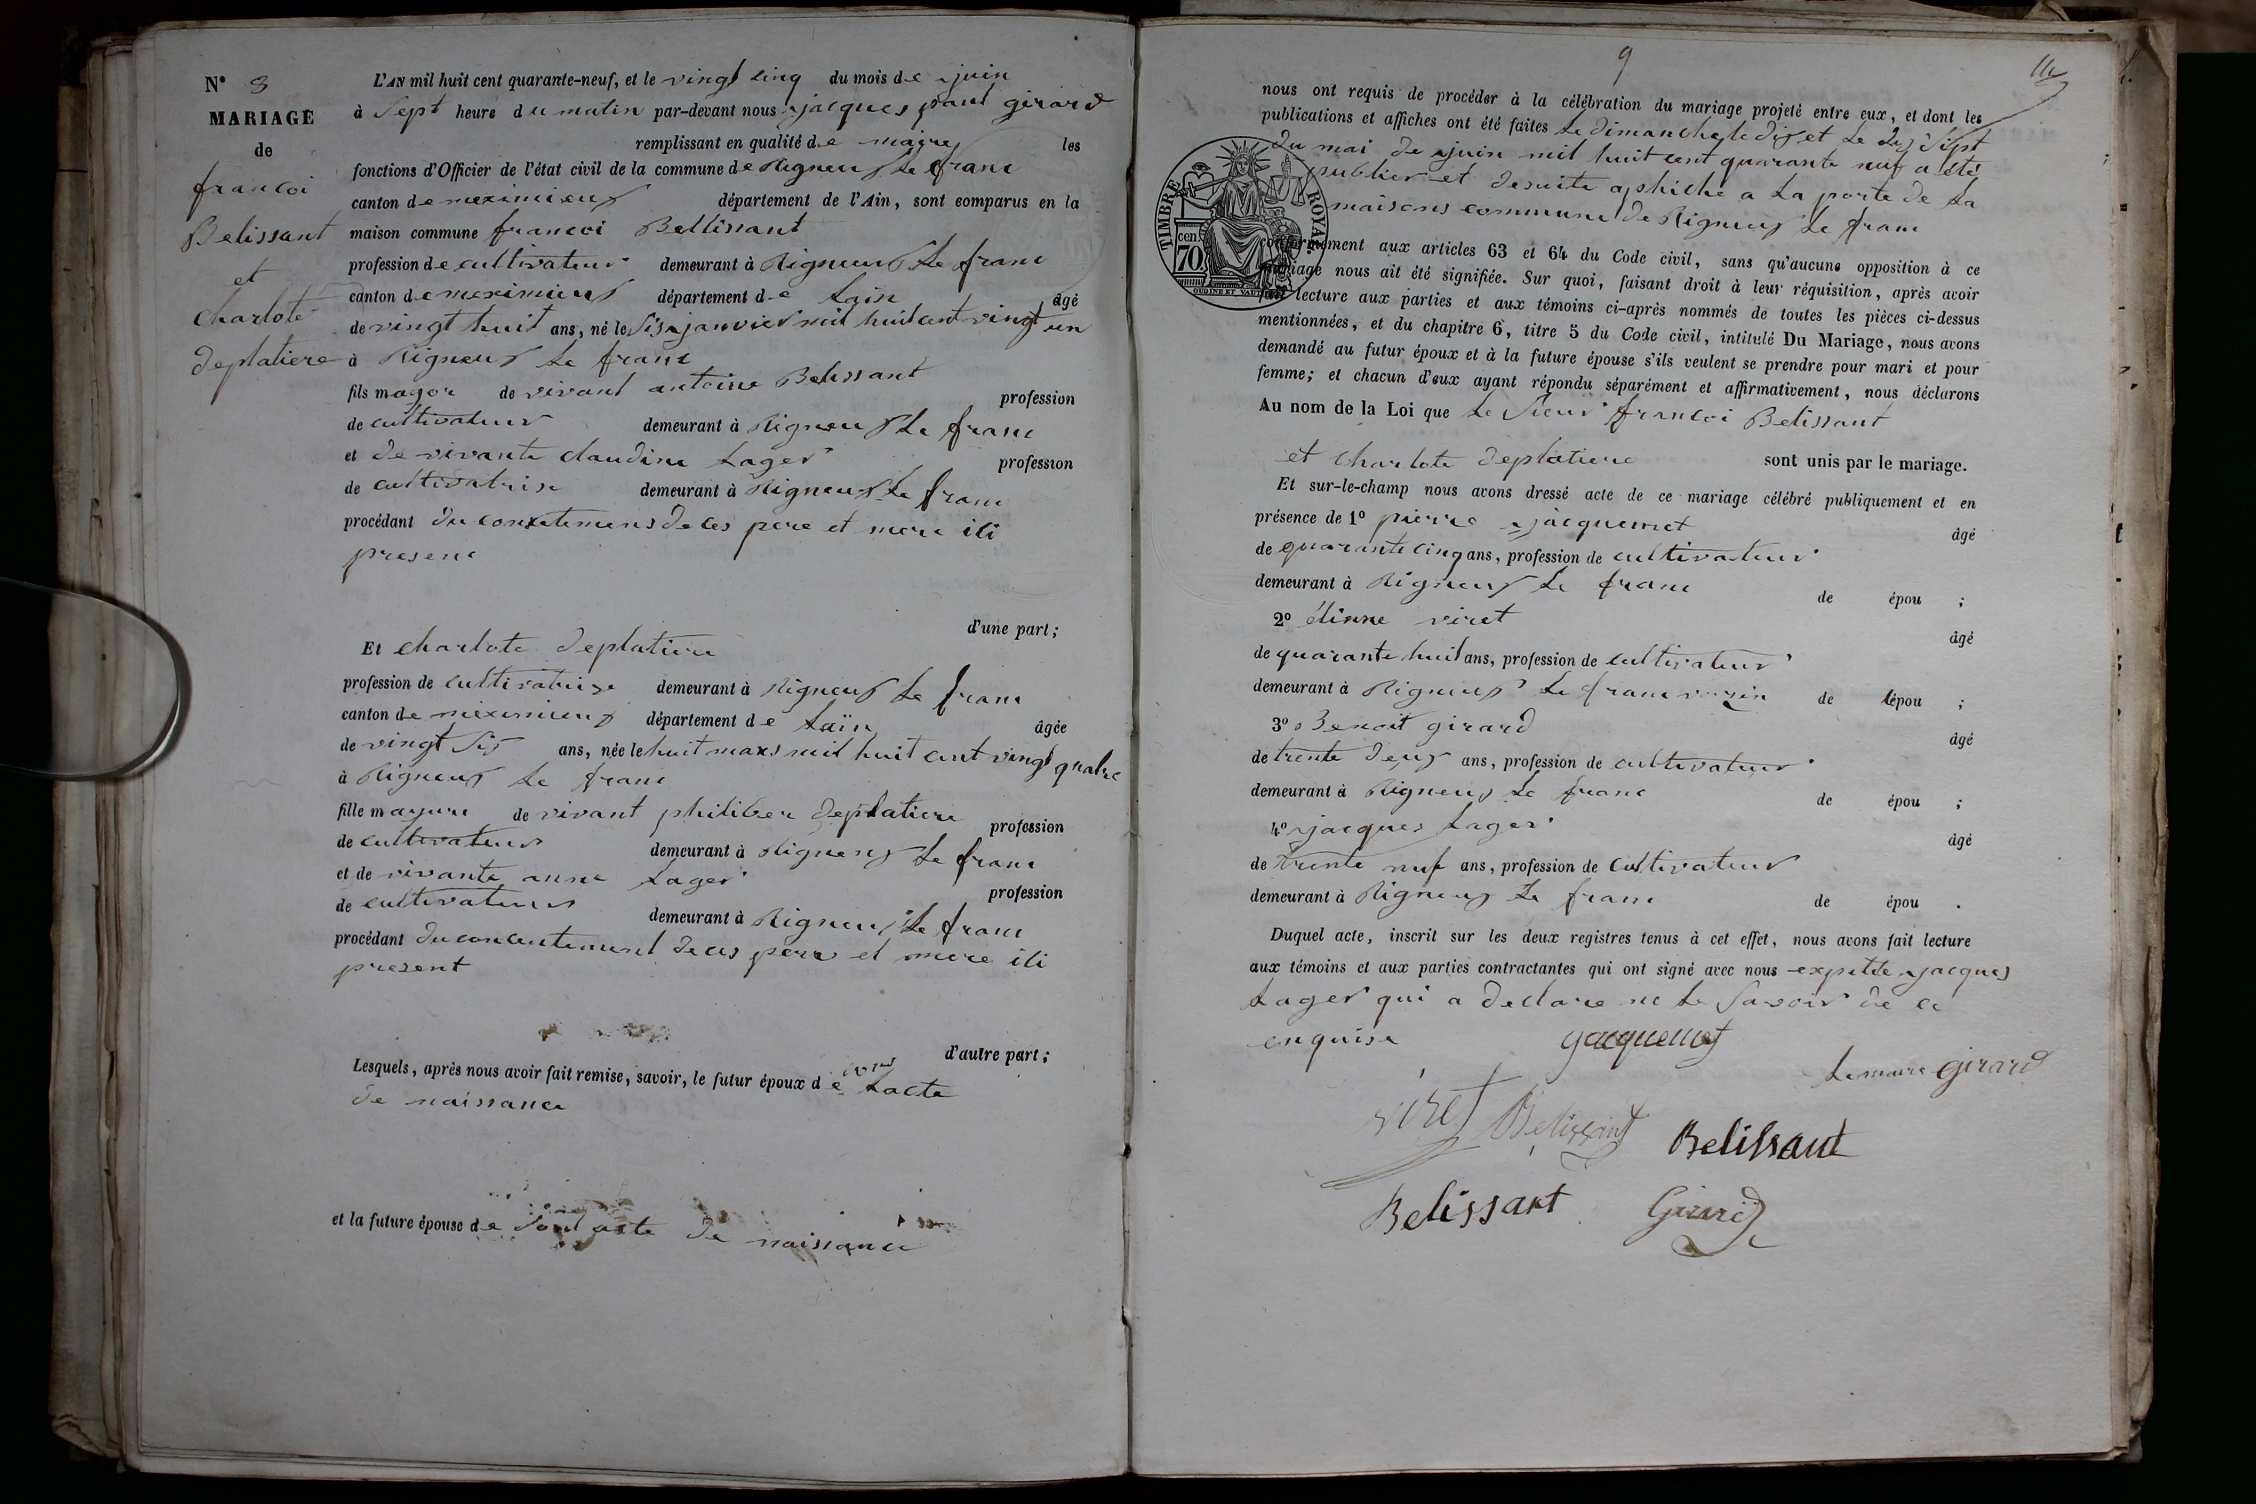 N° 8
MARIAGE
de
francoi
Belissant
et
charlote
deplatiere
L'AN mil huit cent quarante-neuf, et le vingt cinq du mois de juin
à Sept heure du matin par-devant nous jacques paul girard
remplissant en qualité de maire les
fonctions d'Officier de l'état civil de la commune de Rigneux le franc
canton de meximieux département de l'Ain, sont comparus en la
maison commune francoi Bellissant
profession de cultivateur demeurant à Rigneux le franc
canton de meximieux département de Lain âgé
de vingt huit ans, né le Six janvier mil huit cent vingt un
à Rigneux le franc
fils magor de vivant antoine Belissant profession
de cultivateur demeurant à Rigneux le franc
et de vivante claudine Lager profession
de cultivatrise demeurant à Rigneux le franc
procédant du de ces pere et mere ili
presene
d'une part;
Et charlote deplatiere
profession de cultivatrise demeurant à Rigneux le franc
canton de meximieux département de Laïn âgée
de vingt ans, née le huit mars mil huit cent vingt quatre
à Rigneux le franc
fille mayure de vivant philiber deplatiere profession
de cultivateur demeurant à Rigneux le franc
et de vivante anne Lager profession
de cultivateur demeurant à Rigneux le franc
procédant du concentement de ces pere et mere ili
present
d'autre part;
Lesquels, après nous avoir fait remise, savoir, le futur époux de Lacte
de naissance
et la future épouse de Sont acte de naissance
9
nous ont requis de procéder à la célébration du mariage projeté entre eux, et dont les
publications et affiches ont été faites le dimanche le dix et le dix Sept
du moi de juin mil huit cent quarante nuf a été
publier et desuite aphiché a la porte de la
maisons commune de Rigneux le franc
TIMBRE ROYAL
cen. 70
OUDINE ET VAUTHIER
conformément aux articles 63 et 64 du Code civil, sans qu'aucune opposition à ce
mariage nous ait été signifiée. Sur quoi, faisant droit à leur réquisition, après avoir
fait lecture aux parties et aux témoins ci-après nommés de toutes les pièces ci-dessus
mentionnées, et du chapitre 6, titre 5 du Code civil, intitulé Du Mariage, nous avons
demandé au futur époux et à la future épouse s'ils veulent se prendre pour mari et pour
femme; et chacun d'eux ayant répondu séparément et affirmativement, nous déclarons
Au nom de la Loi que le Sieur francoi Belissant
et charlote deplatiere sont unis par le mariage.
Et sur-le-champ nous avons dressé acte de ce mariage célébré publiquement et en
présence de 1° pierre jacquemet âgé
de quarante cinq ans, profession de cultivateur
demeurant à Rigneux le franc de épou ;
2° étinne viret âgé
de quarante huit ans, profession de cultivateur
demeurant à Rigneux le franc vozin de lépou ;
3° Benoit girard âgé
de trente deux ans, profession de cultivateur
demeurant à Rigneux le franc de épou ;
4° jacques Lager âgé
de trente nuf ans, profession de cultivateur
demeurant à Rigneux le franc de épou .
Duquel acte, inscrit sur les deux registres tenus à cet effet, nous avons fait lecture
aux témoins et aux parties contractantes qui ont signé avec nous jacques
Lager qui a declare ne le Savoir de ce
enquise
jacquemet
Le maire girard
viret Belissant Belissant
Belissant Girard